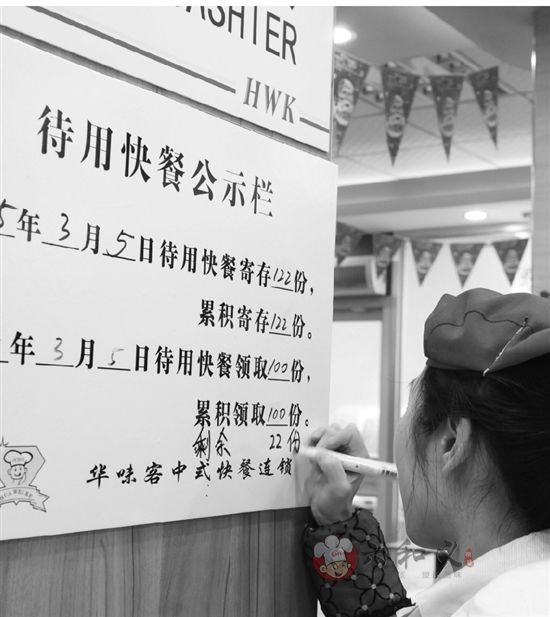 HWK
待用快餐公示栏
5年3月5日待用快餐寄存122份，
累积寄存122份。
年3月5日待用快餐领取100份，
累积领取100份。
剩余 22份
华味客中式快餐连锁
和义